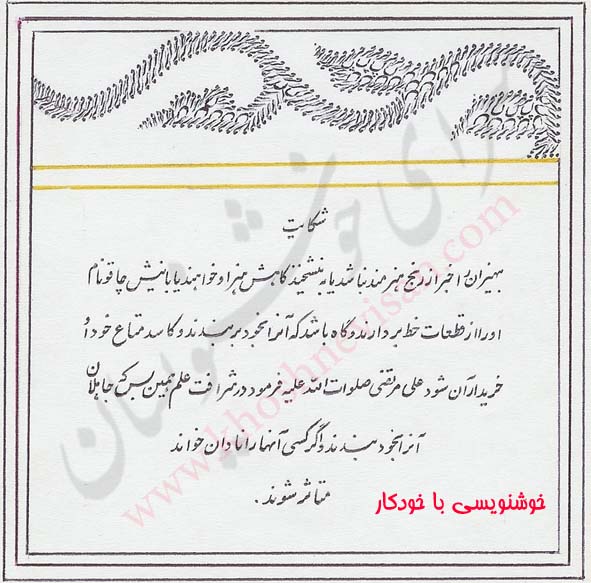 شکایت
بی‌هنران را خبر از رنج هنرمند نباشد یا کاهش هنر او خواهند یا با نیش چاقو نام
او را از قطعات خط بردارند و گاه باشد که آنرا بخود بربندند و کاسد متاع خود را
خریدار آن شود علی مرتضی صلوات الله علیه فرمود در شرافت علم همین بس که جاهلان
آنرا بخود بندند و گر کسی آنها را نادان خواند
متاثر شوند.
خوشنویسی با خودکار
سرای خوشنویسان
www.khoshnevisan.com